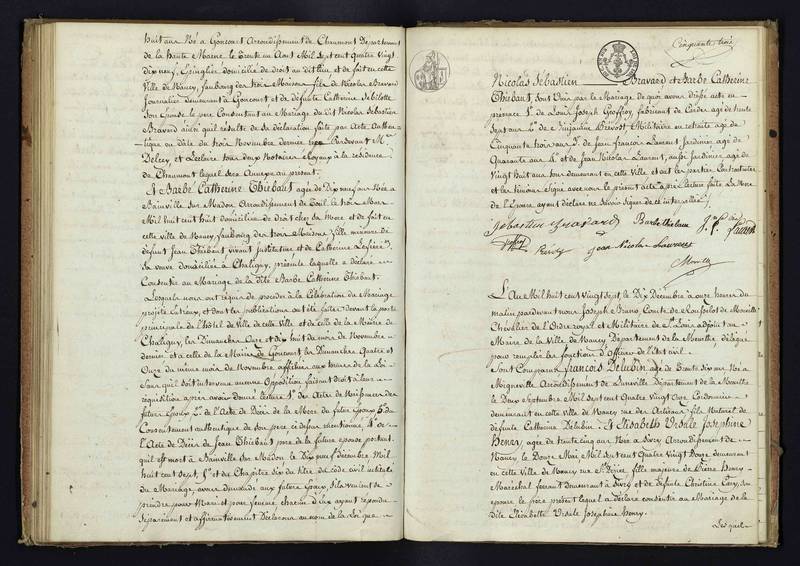 huit ans Né à Goncourt Arrondissement de Chaumont Département
de la haute Marne, le trente un Aout Mil Sept cent quatre vingt
dix neuf, Epinglier domicilié de droit au dit lieu, et de fait en cette
Ville de Nancy, faubourg des trois Maisons fils de Nicolas Bravard
Journalier demeurant à Goncourt et de défunte Catherine Sebilotte
Son épouse le père Consentant au Mariage du dit Nicolas Sebastien
Bravard ainsi qu'il résulte de Sa déclaration faite par Acte Authen-
-tique en date du trois Novembre dernier reçu Pardevant Me
Delecey, et Leclerc Son deux Notaires Royaux à la résidence
de Chaumont lequel Sera Annexé au présent.
Et Barbe Catherine Thiebaut agée de Dix neuf ans Née à
Bainville Sur Madon Arrondissement de Toul, le trois Mars
Mil huit cent huit domiciliée de droit chez Sa Mère et de fait en
cette Ville de Nancy, faubourg des trois Maisons fille mineure de
défunt Jean Thiebaut vivant Instituteur et de Catherine
Sa veuve domiciliée à Chaligny, présente laquelle a déclaré
Consentir au Mariage de la dite Barbe Catherine Thiebaut.
Lesquels nous ont requis de procéder à la Célébration du Mariage
projeté entr'eux, et dont les publications ont été faites devant la porte
principale de l'hôtel de Ville de cette Ville et de celle de la Mairie de
Chaligny, les Dimanches Onze et dix huit du mois de Novembre
dernier et à celle de la Mairie de Goncourt les Dimanches Quatre et
Onze du même mois de Novembre, affichées aux termes de la Loi
Sans qu'il soit intervenu aucune Opposition faisant droit à leur
réquisition après avoir donné lecture 1° des Actes de Naissances des
futurs Epoux 2° de l'Acte de Décès de la Mère du futur Epoux 3° du
Consentement authentique de Son père ci dessus mentionné 4° de
l'Acte de Décès de Jean Thiebaut père de la future épouse portant
qu'il est mort à Bainville Sur Madon le Dix neuf Décembre Mil
huit cent Sept, 5° et du Chapitre Six du titre du Code civil intitulé
du Mariage, avons demandé aux futurs Epoux, S'ils veulent Se
prendre pour Mari et pour femme chacun d'eux ayant répondu
Séparement et affirmativement Déclarons au nom de la Loi que
Cinquante trois
Nicolas Sébastien Bravard et Barbe Catherine
Thiebaut, Sont Unis par le Mariage de quoi avons dressé acte en
présence 1° de Louis Joseph Geoffroy, fabricant de Cardes agé de trente
Sept ans 2° de Benjamin Prevost Militaire en retraite agé de
Cinquante trois ans 3° de Jean François Laurent Jardinier agé de
Quarante ans 4° et de Jean Nicolas Laurent, aussi Jardinier agé de
Vingt huit ans tous demeurant en cette Ville et ont les parties Contractantes
et les témoins Signé avec nous le présent acte après Lecture faite la Mère
de l'Epouse ayant déclaré ne Savoir Signer de ce interpellée
Sebastien Bravard Barbe thiebaut J. f. Laurent
Jean Nicolas Laurent
L'An Mil huit cent Vingt Sept, le Dix Décembre à onze heures du
matin pardevant nous Joseph Bruno, Comte de Rouffelot de Morville
Chevalier de l'Ordre royal et Militaire de St Louis adjoint au
Maire de la Ville de Nancy Département de la Meurthe délégué
pour remplir les fonctions d'Officier de l'état civil.
Sont Comparus François Delubin, agé de Trente Six ans Né à
Mignéville Arrondissement de Lunéville Département de la Meurthe
le Deux Septembre Mil Sept cent Quatre Vingt Onze Cordonnier
demeurant en cette Ville de Nancy rue des Artisans fils Naturel de
défunte Catherine Delubin. Et Elisabeth Ursule Josephine
Henry, agée de trente cinq ans Née à Sivry Arrondissement de
Nancy, le Douze Mai Mil Sept cent Quatre Vingt Douze demeurant
en cette Ville de Nancy rue St Dizier, fille majeure de Pierre Henry
Maréchal ferrant demeurant à Sivry et de défunte Christine Cuny, Son
épouse le père présent lequel a déclaré consentir au Mariage de la
dite Elisabeth Ursule Josephine Henry.
Lesquels